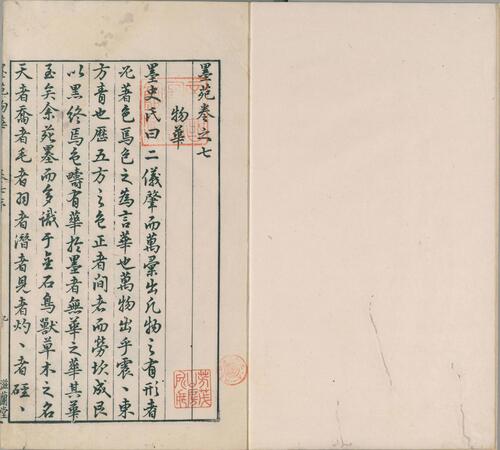 墨苑卷之七
物華
墨史氏曰二儀肇而萬彙出凡物之有形者
況著色焉色之為言華也萬物出乎震〻東
方青也歷五方之色正者間者而勞坎成艮
以黑終焉色疇有華於墨者無華之華其華
至矣余苑墨而多識于金石鳥獸草木之名
天者喬者毛者羽者潛者見者灼〻者硜〻
滋蘭堂